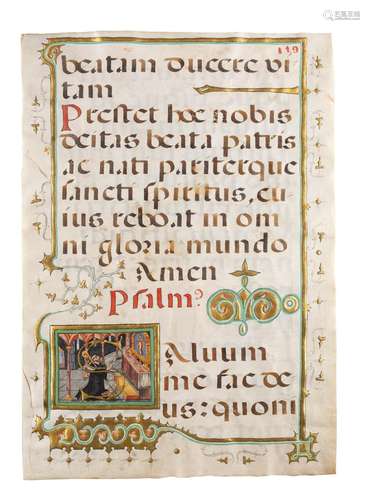 119
beatam ducere vi
tam
Prestet hoc nobis
deitas beata patris
ac nati pariterque
sancti spiritus, cu
ius reboat in om
ni gloria mundo
Amen
Psalm?
aluum
me fac de
us: quoni